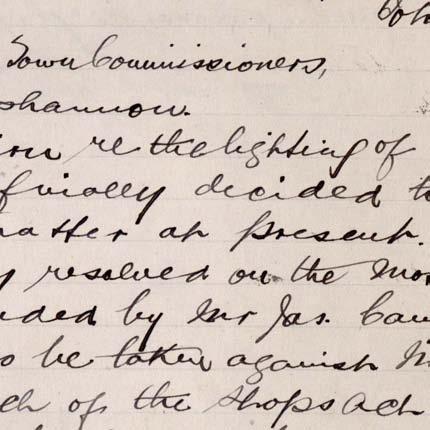 Town Commissioners,
shannon.
ion re the lighting of
finally decided to
matter at present.
y resolved on the Mo
nded by Mr Jas. Cam
to be taken against M
ch of the Shops Act